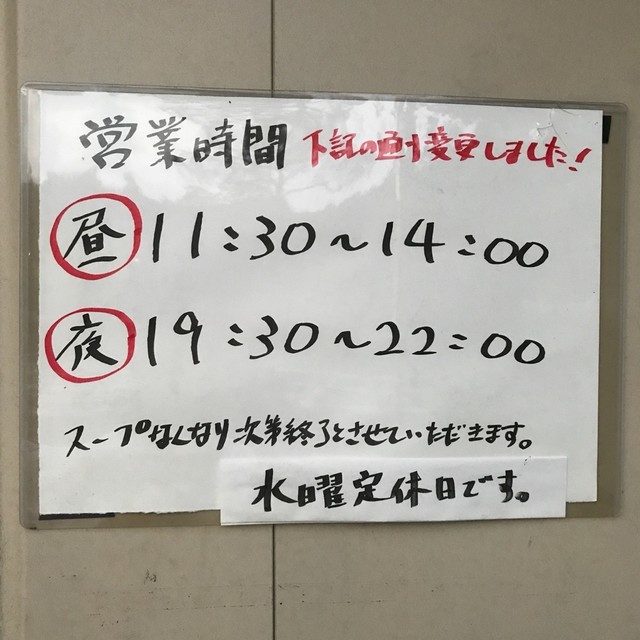 営業時間 下記の通り変更しました!
昼 11:30~14:00
夜 19:30~22:00
スープなくなり次第終了とさせていただきます。
水曜定休日です。